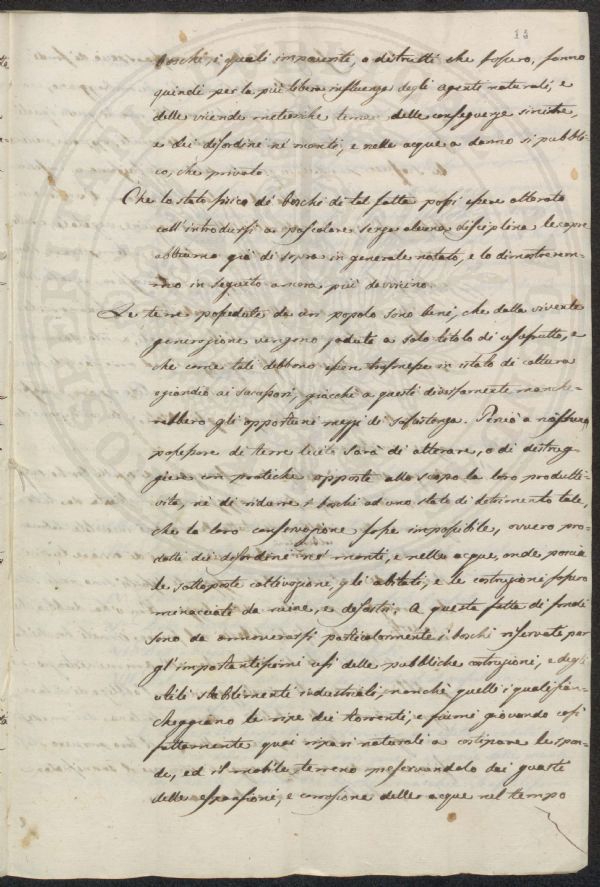 boschi, i quali impoveriti, o distrutti che fossero, fanno
quindi per la più libera influenza degli agenti naturali, e
delle vicende meteoriche temer delle conseguenze sinistre,
e dei disordini ne' monti, e nelle acque a danno sì pubbli-
co, che privato.
Che lo stato fisico de' boschi di tal fatta possi essere alterato
coll'introdursi a pascolare senza alcuna disciplina le capre
abbiamo già di sopra in generale notato, e lo dimostrerem-
mo in seguito ancora più da vicino.
Le terre possedute da un popolo sono beni, che dalla vivente
generazione vengono goduti a solo titolo di usufrutto, e
che come tali debbono esser trasmesse in istato di coltura
eziandio ai successori, giacchè a questi diversamente manche-
rebbero gli opportuni mezzi di sussistenza. Perciò a nissun
possessore di terre lecito sarà di alterare, o di distrug-
giere con pratiche opposte allo scopo la loro produtti-
vità, nè di ridurre i boschi ad uno stato di detrimento tale,
che la loro conservazione fosse impossibile, ovvero pro-
dotti dei disordini ne' monti, e nelle acque, onde poscia
le sottoposte coltivazioni, gli abitati, e le costruzioni fossero
minacciati da ruine, e disastri. A questa fatta di fondi
sono da annoverarsi particolarmente i boschi riservati per
gl'importantissimi usi delle pubbliche costruzioni, e degli
utili stabilimenti industriali, nonchè quelli i quali fian-
cheggiano le ripe dei torrenti, e fiumi giovando così
fattamente quai ripari naturali a costipare le spon-
de, ed il mobile terreno preservandolo dai guasti
delle espansioni, e corrosione delle acque nel tempo